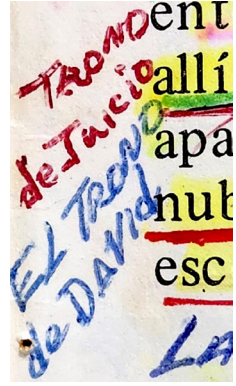 TRONO
de Juicio
EL TRONO
de DAVID
ent
allí
apa
nub
esc
LA